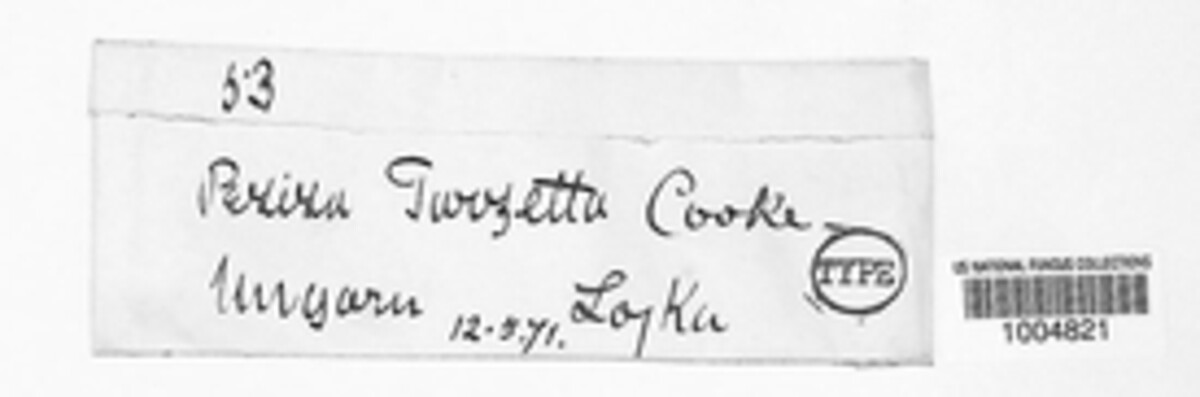 53
Peziza Tarzetta Cooke
TYPE
Ungarn 12.5.71. Lojka
US NATIONAL FUNGUS COLLECTIONS
1004821